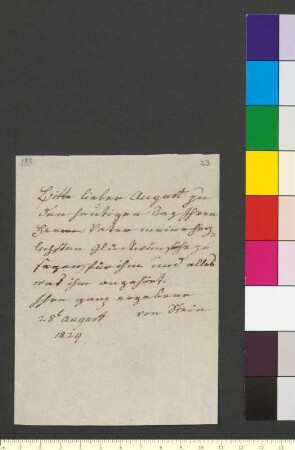 188
23
Bitte lieber August zu
den heutigen Tag Ihren
Herrn Vater meine herz
lichsten Glückwünsche zu
sagen, für ihm und alles
was ihm angehört.
Ihre ganz ergebene
28t August von Stein
1824